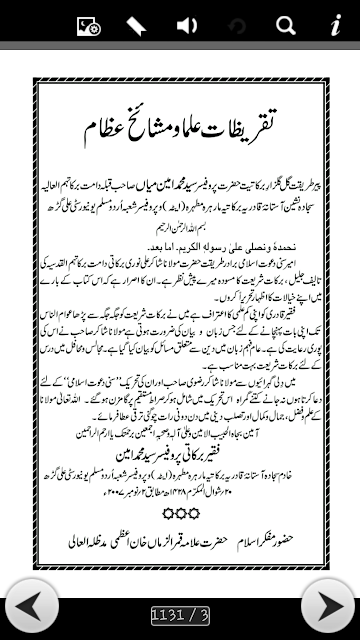 تقریظات علما و مشائخ عظام
پیر طریقت گل گلزار برکاتیت حضرت پروفیسر سید محمد امین میاں صاحب قبلہ دامت برکاتہم العالیہ
سجادہ نشین آستانۂ قادریہ برکاتیہ مارہرہ مطہرہ (ایٹہ) و پروفیسر شعبۂ اُردو مسلم یونیورسٹی علی گڑھ
بسم اللہ الرحمٰن الرحیم
نحمدہٗ ونصلی علیٰ رسولہِ الکریم. اما بعد.
امیر سنی دعوت اسلامی برادر طریقت حضرت مولانا شاکر علی نوری برکاتی دامت برکاتہم القدسیہ کی
تالیف جلیل، برکات شریعت کا مسودہ میرے پیش نظر ہے۔ ان کا اصرار ہے کہ اس کتاب کے بارے
میں اپنے خیالات کا اظہار تحریراً کروں۔
فقیر قادری کو اپنی کم علمی کا اعتراف ہے میں نے برکات شریعت کو جگہ جگہ سے پڑھا عوام الناس
تک اپنی بات پہنچانے کے لئے جس زبان و بیان کی ضرورت ہوتی ہے مولانا شاکر صاحب نے اس کی
پوری رعایت کی ہے۔ عام فہم زبان میں دین سے متعلق مسائل کو بیان کیا گیا ہے۔ مجالس و محافل میں درس
کے لئے برکات شریعت بہت مناسب ہے۔
میں دلی گہرائیوں سے مولانا شاکر رضوی صاحب اور ان کی تحریک ”سنی دعوت اسلامی“ کے لئے
دعا کرتا ہوں نہ جانے کتنے گمراہ اس تحریک میں شامل ہو کر صراط مستقیم پر گامزن ہو گئے۔ اللہ تعالیٰ مولانا
کے علم و فضل، جمال و کمال اور تصلب دینی میں دن دونی رات چوگنی ترقی عطا فرمائے۔
آمین بجاہ الحبیب الامین وعلیٰ آلہ وصحبہ اجمعین برحمتک یا ارحم الراحمین
فقیر برکاتی پروفیسر سید محمد امین
خادم سجادہ آستانۂ قادریہ برکاتیہ مارہرہ مطہرہ (ایٹہ) و پروفیسر شعبۂ اُردو مسلم یونیورسٹی علی گڑھ
۲۰؍شوال المکرم ۱۴۲۸ھ مطابق ۲؍نومبر ۲۰۰۷ء
حضور مفکر اسلام حضرت علامہ قمر الزماں خان اعظمی مدظلہ العالی
1131 / 3